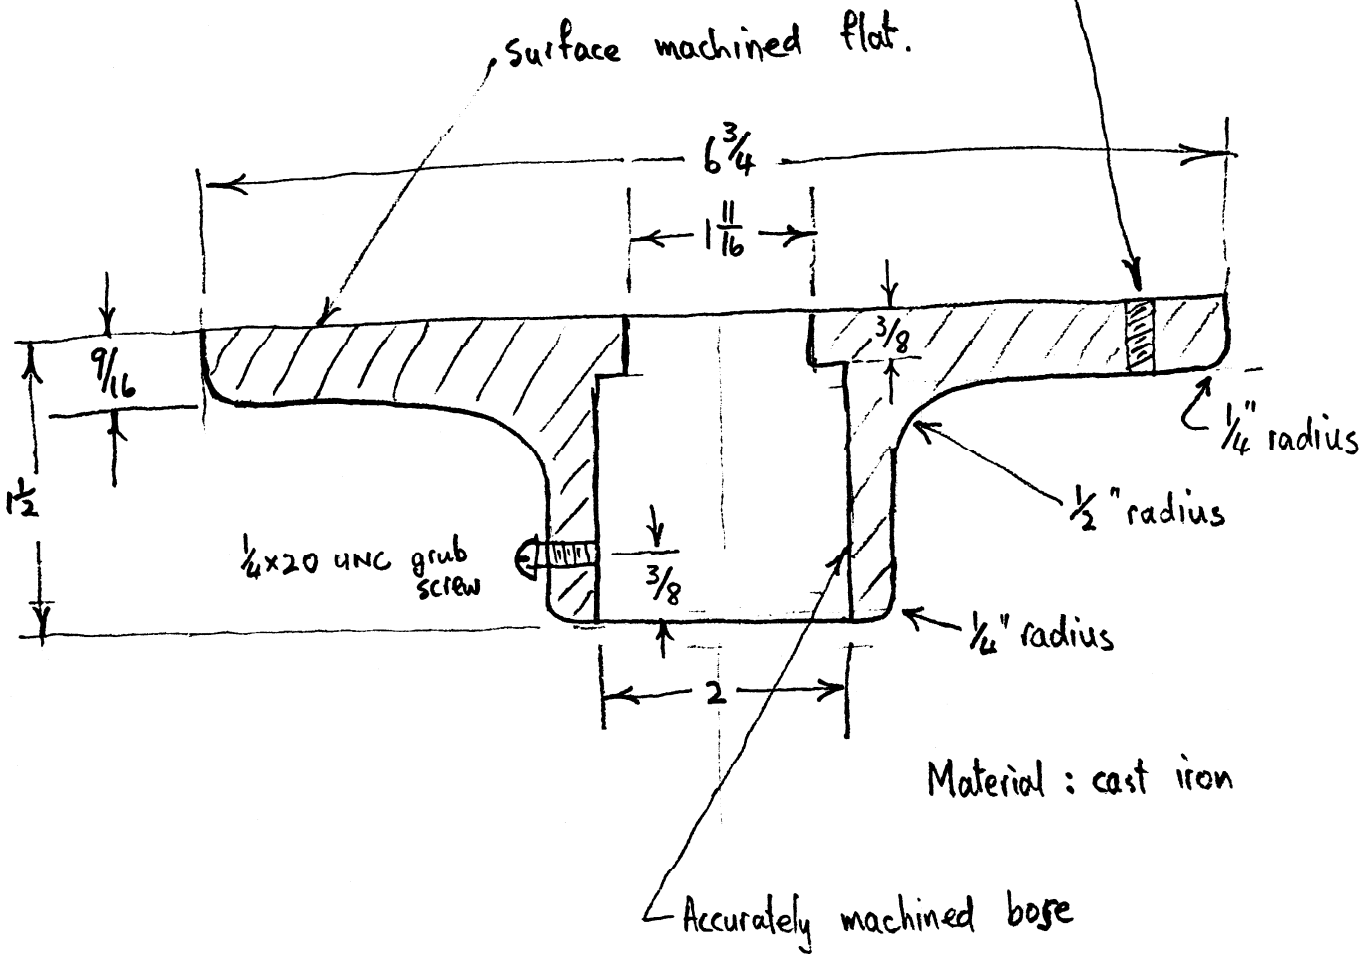 surface machined flat.
6 3/4
1 11/16
3/8
9/16
1/4" radius
1 1/2
1/2" radius
1/4 x 20 UNC grub
screw
3/8
1/4" radius
2
Material : cast iron
Accurately machined bore